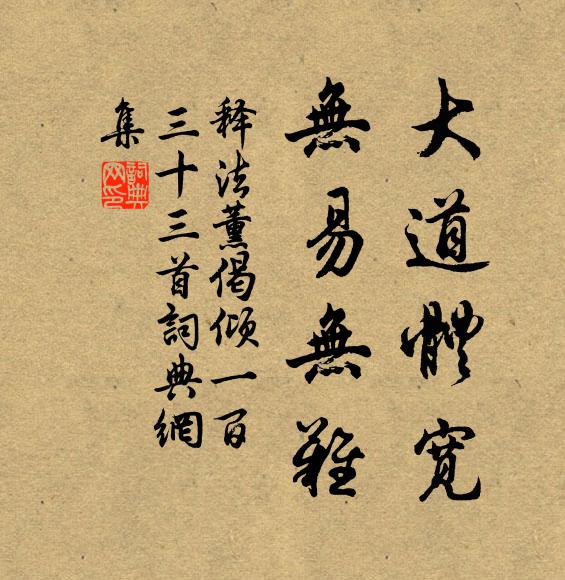 大道體寬
無易無難
释法薰偈倾一百
三十三首詞典網
集
詞典網印